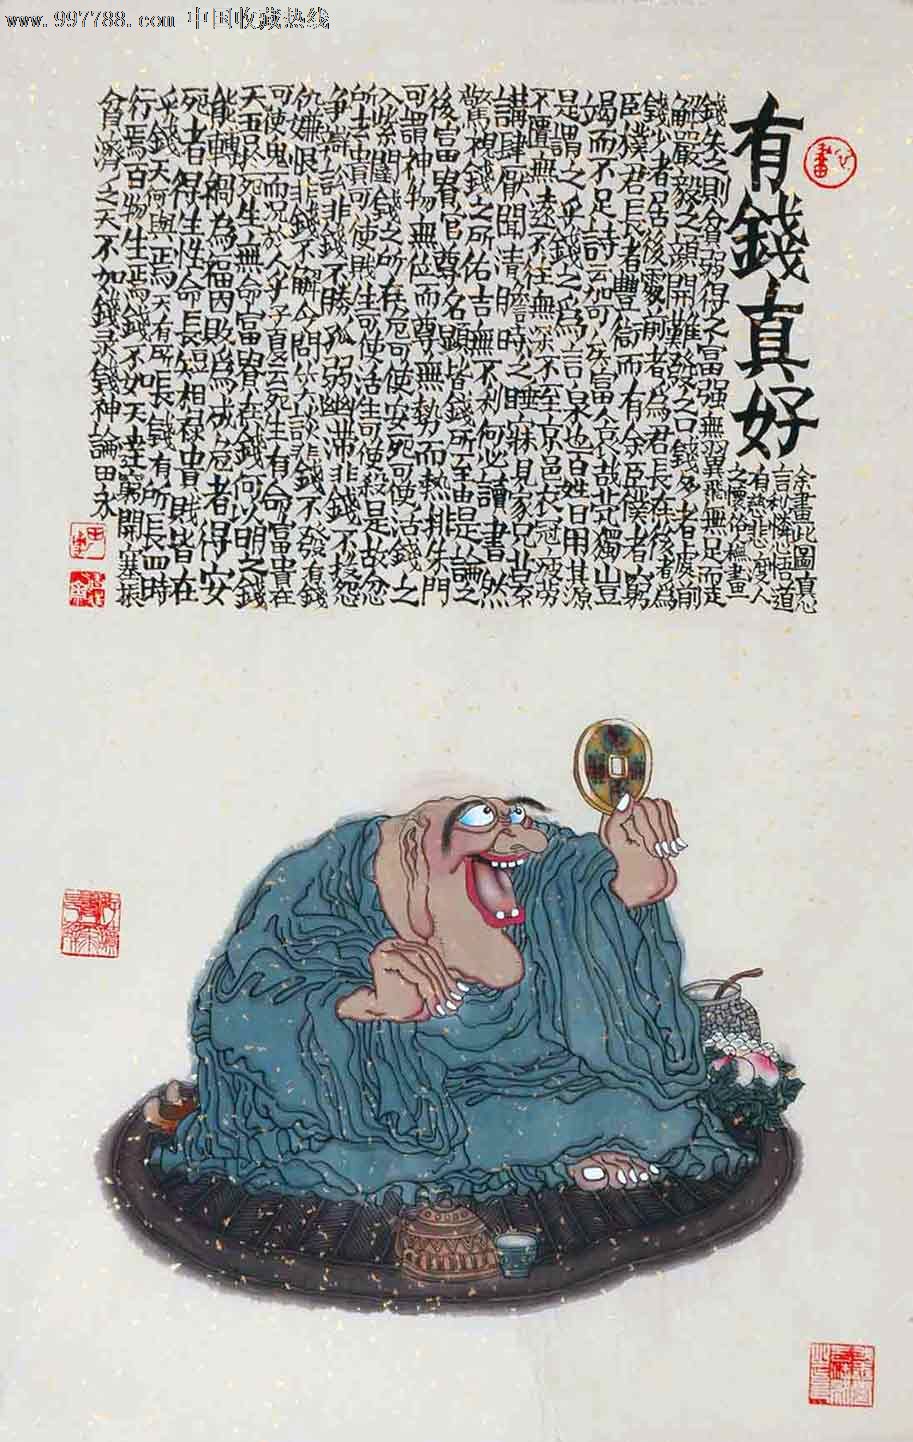 www.997788.com 中国收藏热线
有錢真好
余畫此圖真心
言利憐心悟道
有慈悲心度人
之懷俗樵畫
錢失之則貧弱得之富强無翼飛無足而走
解嚴毅之顔開難發之口錢多者處前
錢少者居後處前者為君長在後者為
臣僕君長者豐衍而有余臣僕者窮
竭而不足詩云哿矣富人哀哉煢獨豈
是謂之乎錢之為言泉也百姓日用其源
不匱無遠不往無深不至京邑衣冠疲勞
講肆厭聞清時之睡寐見家兄莫不
驚視錢之所佑吉無不利何必讀書然
後富貴官尊名顯皆錢所至由是論之
可謂神物無位而尊無勢而熱排朱門
入紫闥錢之所在危可使安死可使活錢之
所去貴可使賤生可使活生可使殺是故忿
争辯訟非錢不勝孤弱幽滯非錢不拔怨
仇嫌恨非錢不解令問笑談非錢不發有錢
可使鬼而况於人乎子夏云死生有命富貴在
天吾以死生無命富貴在錢何以明之錢
能轉禍為福因敗為成危者得安
死者得生性命長短相禄貴賤皆在
乎錢天何與焉天有所長錢有所長四時
行焉百物生焉錢不如天達窮開塞振
貧濟乏天不如錢录錢神論田永